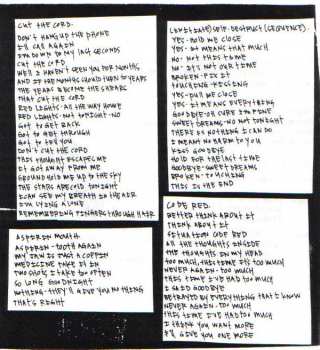 CUT THE CORD.
DON'T HANG UP THE PHONE
I'LL CALL AGAIN
I'M DOWN TO MY LAST SECONDS
CUT THE CORD
WELL I HAVEN'T SEEN YOU FOR MONTHS
AND IF THE MONTHS SHOULD TURN TO YEARS
THE YEARS BECOME THE SHEARS
THAT CUT THE CORD
RED LIGHTS ALL THE WAY HOME
RED LIGHT NOT TONIGHT NO
GOT TO GET BACK
GOT TO GET THROUGH
GOT TO TELL YOU
DON'T CUT THE CORD
THIS THOUGHT ESCAPES ME
IT GOT AWAY FROM ME
GROUND IT'S ME UP TO THE SKY
THE STARS ARE COLD TONIGHT
I CAN SEE MY BREATH IN THE AIR
I'M LYING ALONE
REMEMBERING FINGERS THROUGH HAIR
ASPIRIN MOUTH.
ASPIRIN TOOTH AGAIN
MY JAW IS JUST A COFFIN
MEDICINE TAKE IT IN
TWO SHOTS I TAKE TOO OFTEN
SO LONG GOODNIGHT
NOTHING THEY'LL GIVE YOU NOTHING
THAT'S RIGHT
(INITIATE) SELF-DESTRUCT (SEQUENCE).
YES HOLD ME CLOSE
YES IT MEANS THAT MUCH
NO NOT THIS TIME
NO IT'S NOT OUR TIME
BROKEN FIX IT
TOUCHING KISSING
YES PULL ME CLOSE
YES IT MEANS EVERYTHING
GOODBYE OR CURE IN TIME
SWEET DREAMS NO NOT TONIGHT
THERE IS NOTHING I CAN DO
I MEANT NO HARM TO YOU
KISS GOODBYE
HOLD FOR THE LAST TIME
GOODBYE SWEET DREAMS
BROKEN TOUCHING
THIS IS THE END
CODE RED.
BETTER THINK ABOUT IT
THINK ABOUT IT
SITUATION CODE RED
ALL THE THOUGHTS INSIDE
THE THOUGHTS IN MY HEAD
TOO MUCH, THIS TIME IT'S TOO MUCH
NEVER AGAIN TOO MUCH
THIS TIME I'VE HAD TOO MUCH
I SAID GOODBYE
BETRAYED BY EVERYTHING THAT I KNOW
NEVER AGAIN TOO MUCH
THIS TIME I'VE HAD TOO MUCH
I THINK YOU WANT MORE
I'LL GIVE YOU ONE MORE